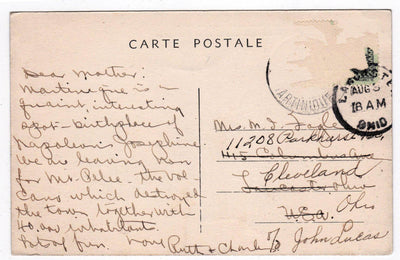 CARTE POSTALE
Dear Mother:
Martinique is a
quaint, interesting
spot - birthplace of
Napoleon's Josephine.
We are leaving now
for Mt. Pelee. The vol
cano which destroyed
the town together with
40,000 inhabitants.
Lots of fun. Love
Ruth & Charles
MARTINIQUE
LANCASTER
AUG 5
18 AM
OHIO
Mrs. M. J.
11208 Parkhurst
415 Columbus Ave
Cleveland
Lancaster Ohio
Ohio
U.S.A.
c/o John Lucas